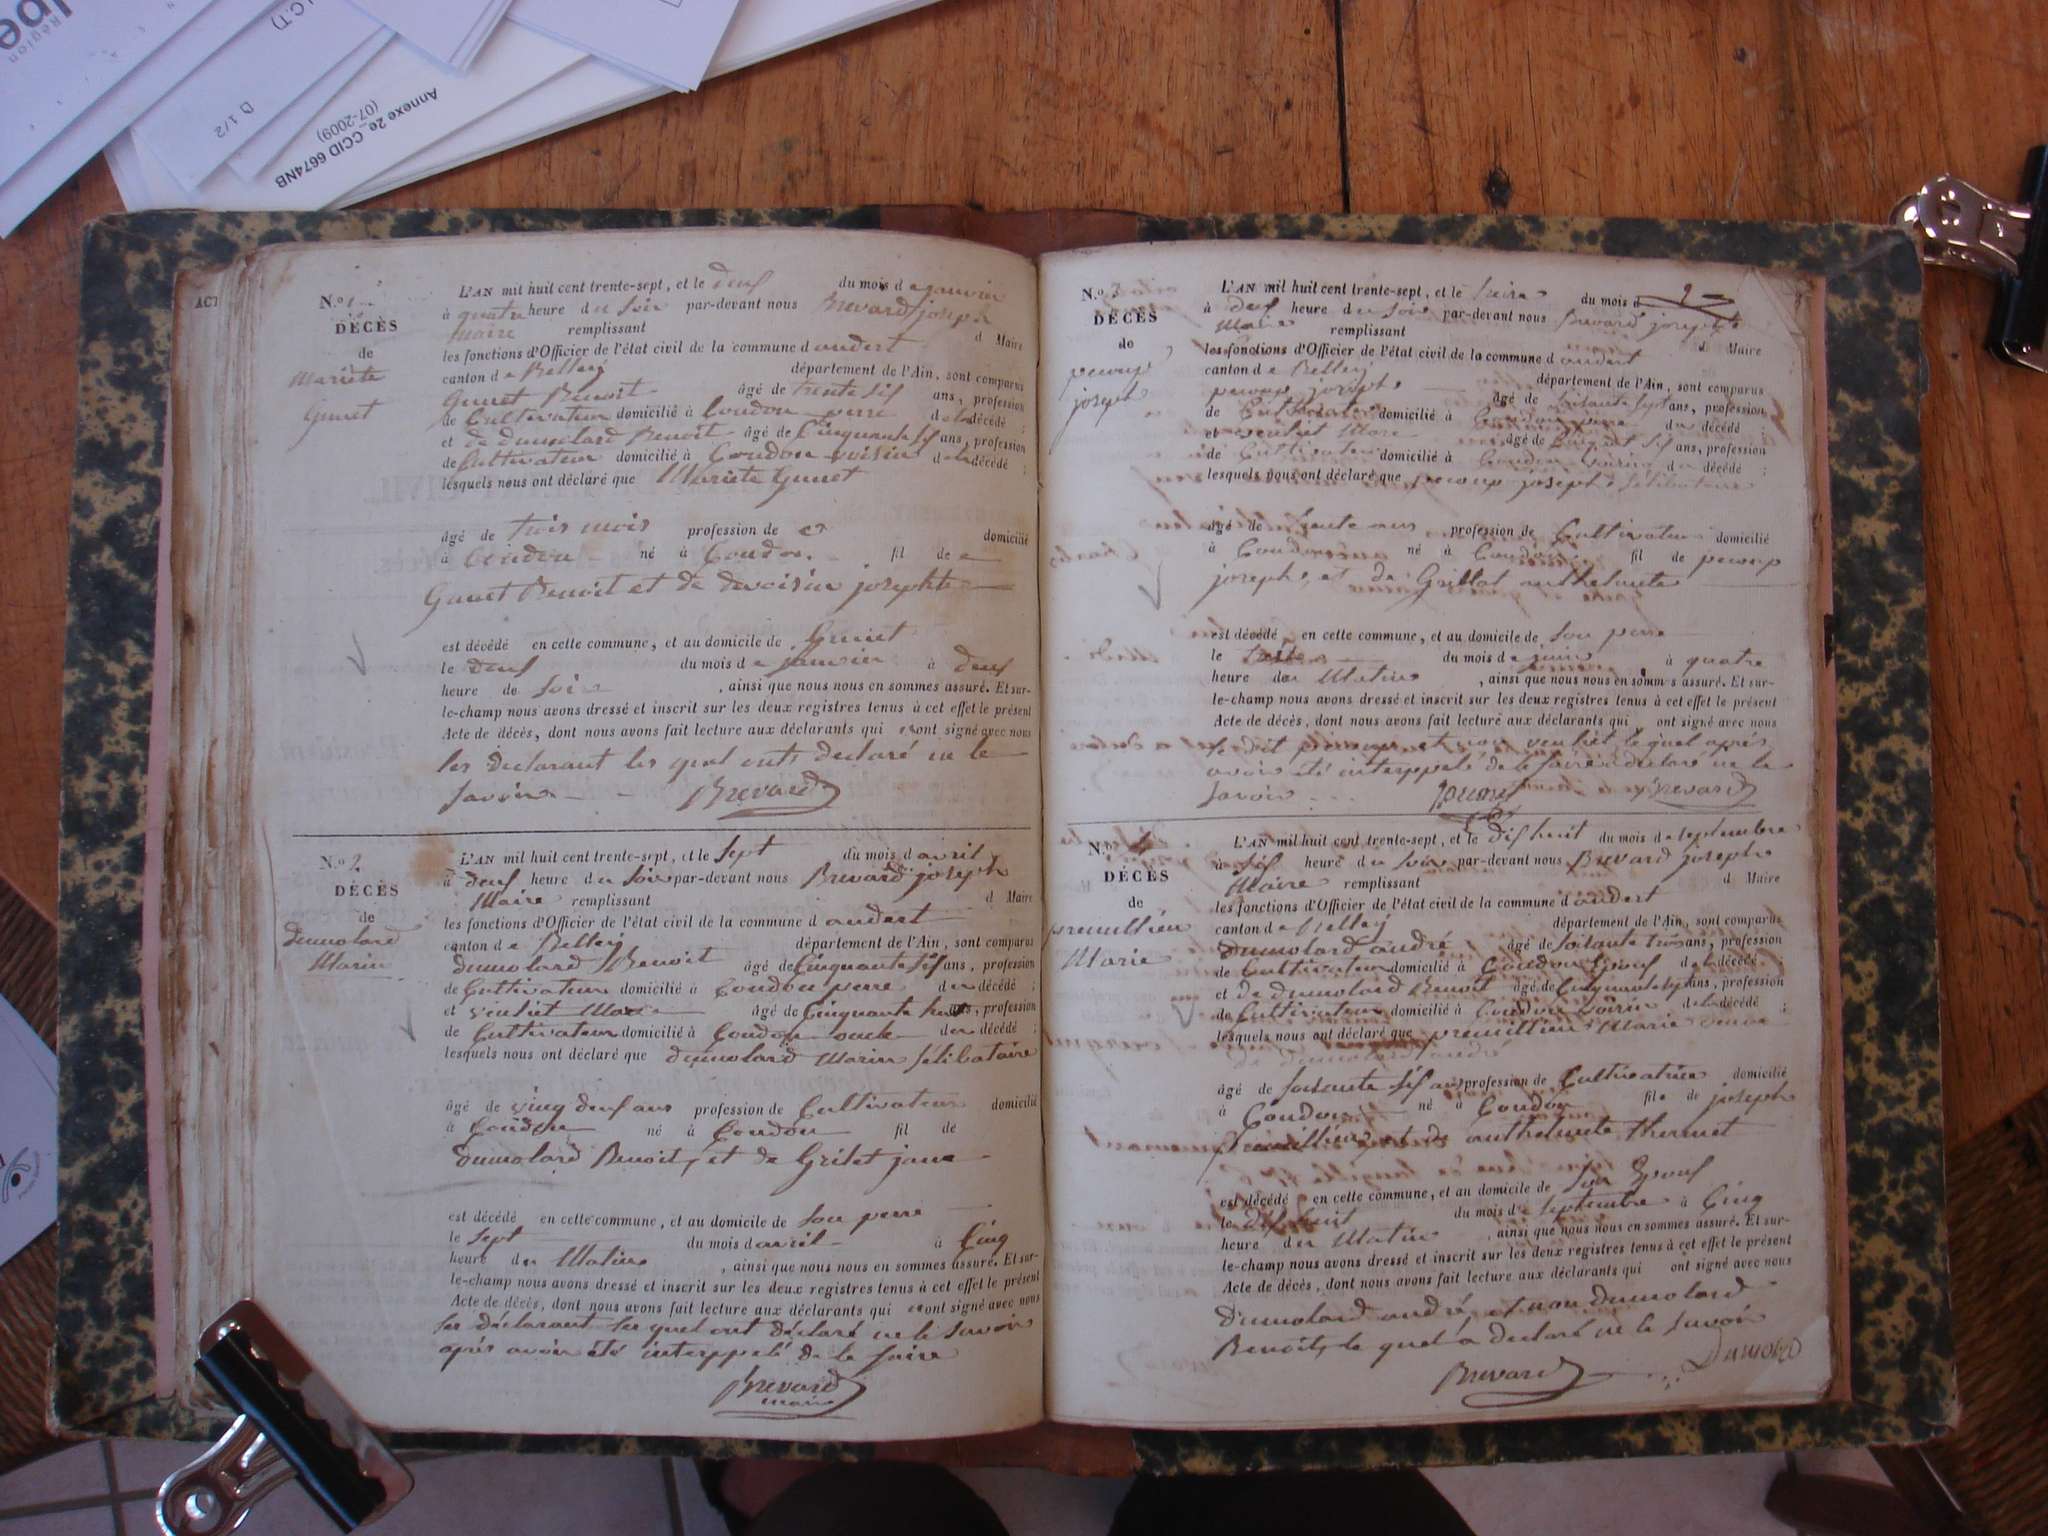 Annexe 2e_CCID 6674NB
(07-2009)
D 1/2
Région
ACT
N.o 1
DÉCÈS
de
Mariète
Gunet
L'AN mil huit cent trente-sept, et le deus du mois de janvier
à quatre heure du soir par-devant nous Brevard joseph
maire remplissant d Maire
les fonctions d'Officier de l'état civil de la commune d andert
canton de Belley département de l'Ain, sont comparus
Gunet Benoit âgé de trente sis ans, profession
de Cultivateur domicilié à Coudon perre de la décédé ;
et de dumolard Benoit âgé de Cinquante sis ans, profession
de Cultivateur domicilié à Coudon voisin de la décédé ;
lesquels nous ont déclaré que Mariète Gunet
âgé de trois mois profession de domicilié
à Coudon né à Coudon fil de
Gunet Benoit et de devoisin josephte
est décédé en cette commune, et au domicile de Gunet
le deus du mois de janvier à deus
heure de soir , ainsi que nous nous en sommes assuré. Et sur-
le-champ nous avons dressé et inscrit sur les deux registres tenus à cet effet le présent
Acte de décès, dont nous avons fait lecture aux déclarants qui ont signé avec nous
les declarant les quel onts declaré ne le
savoir Brevard
N.o 2
DÉCÈS
de
Dumolard
Marin
L'AN mil huit cent trente-sept, et le sept du mois d avril
à deus heure du soir par-devant nous Brevard joseph
Maire remplissant d Maire
les fonctions d'Officier de l'état civil de la commune d andert
canton de Belley département de l'Ain, sont comparus
dumolard Benoit âgé de Cinquante sis ans, profession
de Cultivateur domicilié à Coudon perre du décédé ;
et veuliet Marc âgé de Cinquante ans, profession
de Cultivateur domicilié à Coudon oucle du décédé ;
lesquels nous ont déclaré que dumolard Marin selibataire
âgé de vinq deus ans profession de Cultivateur domicilié
à Coudon né à Coudon fil de
Dumolard Benoit, et de Grilet jane
est décédé en cette commune, et au domicile de son perre
le sept du mois d avril à Cinq
heure du Matin , ainsi que nous nous en sommes assuré. Et sur-
le-champ nous avons dressé et inscrit sur les deux registres tenus à cet effet le présent
Acte de décès, dont nous avons fait lecture aux déclarants qui ont signé avec nous
les déclarant les quel ont déclaré ne le savoir
après avoir été interppelé de le faire
Brevard
maire
N.o 3
DÉCÈS
de
joseph
L'AN mil huit cent trente-sept, et le treize du mois d
à deus heure du soir par-devant nous Brevard joseph
Maire remplissant d Maire
les fonctions d'Officier de l'état civil de la commune d andert
canton de Belley département de l'Ain, sont comparus
joseph âgé de soisante sept ans, profession
de Cultivateur domicilié à Coudon perre du décédé ;
et veuliet Marc âgé de Cinquant sis ans, profession
de Cultivateur domicilié à Coudon voisin du décédé ;
lesquels nous ont déclaré que joseph selibataire
âgé de trente ans profession de Cultivateur domicilié
à Coudon né à Coudon fil de
joseph, et de Grillot anthelmète
est décédé en cette commune, et au domicile de son perre
le treize du mois de juin à quatre
heure du Matin , ainsi que nous nous en sommes assuré. Et sur-
le-champ nous avons dressé et inscrit sur les deux registres tenus à cet effet le présent
Acte de décès, dont nous avons fait lecture aux déclarants qui ont signé avec nous
et non veuliet le quel après
avoir été interppelé de le faire a declaré ne le
savoir Brevard
N.o
DÉCÈS
de
premillieu
Marie
L'AN mil huit cent trente-sept, et le dis huit du mois de septembre
à sis heure du soir par-devant nous Brevard joseph
Maire remplissant d Maire
les fonctions d'Officier de l'état civil de la commune d andert
canton de Belley département de l'Ain, sont comparus
Dumolard andré âgé de soisante trois ans, profession
de Cultivateur domicilié à Coudon Epous de la décédé ;
et de dumolard Benoit âgé de Cinquante ans, profession
de Cultivateur domicilié à Coudon voisin de la décédé ;
lesquels nous ont déclaré que premillieu Marie
dumolard andré
âgé de soisante sis ans profession de Cultivatrice domicilié
à Coudon né à Coudon file de joseph
premillieu et de anthelmète thermet
est décédé en cette commune, et au domicile de son Epous
le dis huit du mois de septembre à Cinq
heure du Matin , ainsi que nous nous en sommes assuré. Et sur-
le-champ nous avons dressé et inscrit sur les deux registres tenus à cet effet le présent
Acte de décès, dont nous avons fait lecture aux déclarants qui ont signé avec nous
dumolard andré et non dumolard
Benoit, le quel a declaré ne le savoir
Brevard Dumolard